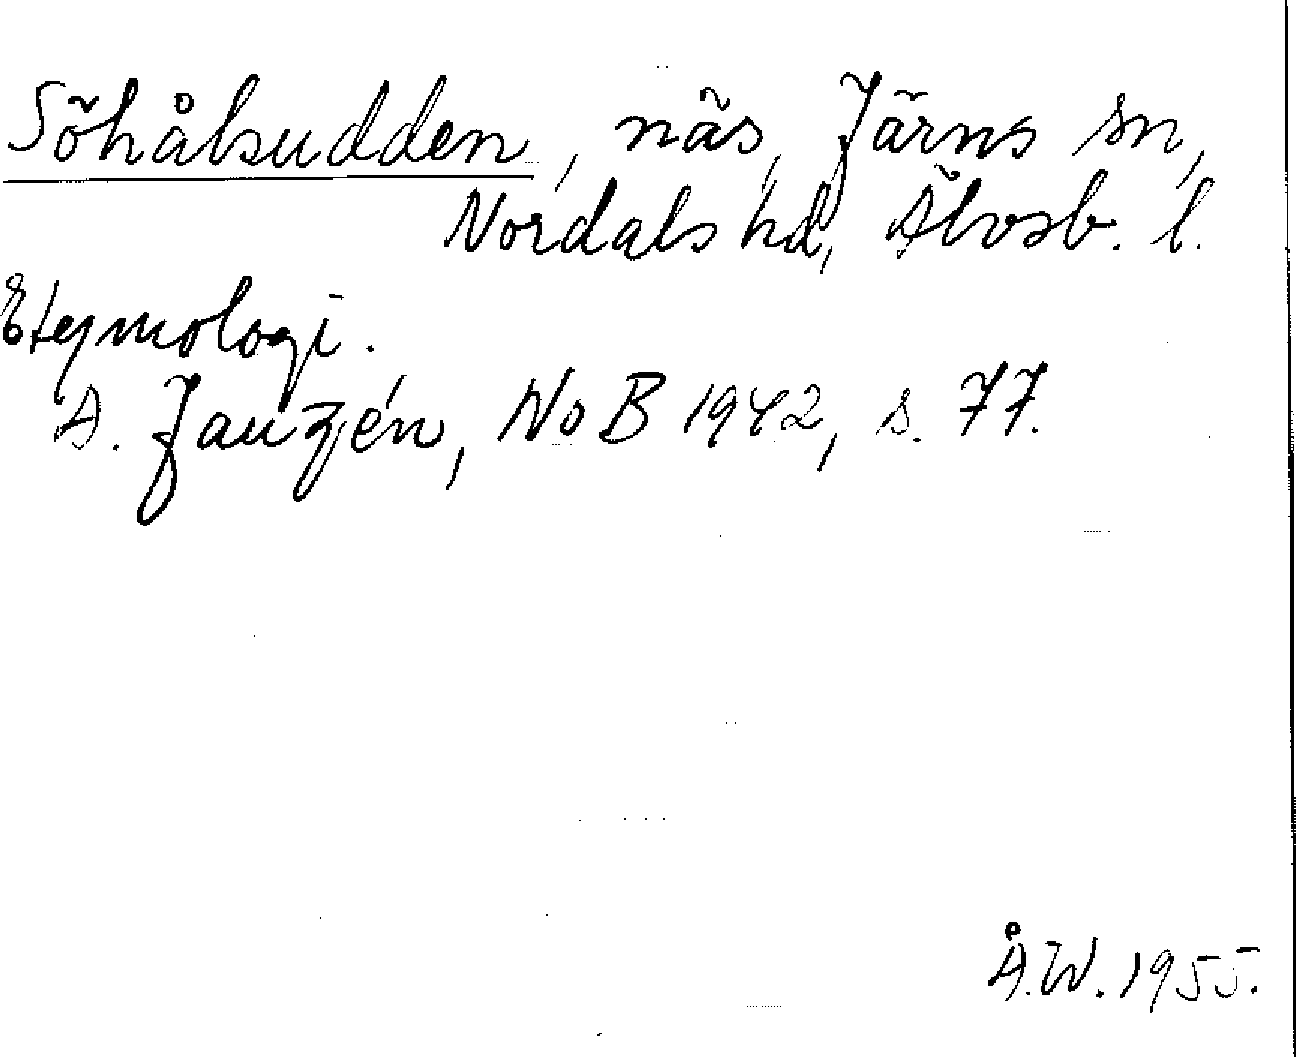 Söhålsudden, näs, Järns sn,
Nordals hd, Älvsb. l.
Etymologi.
A. Janzén, NoB 1942, s. 77.
Å.W. 1955.